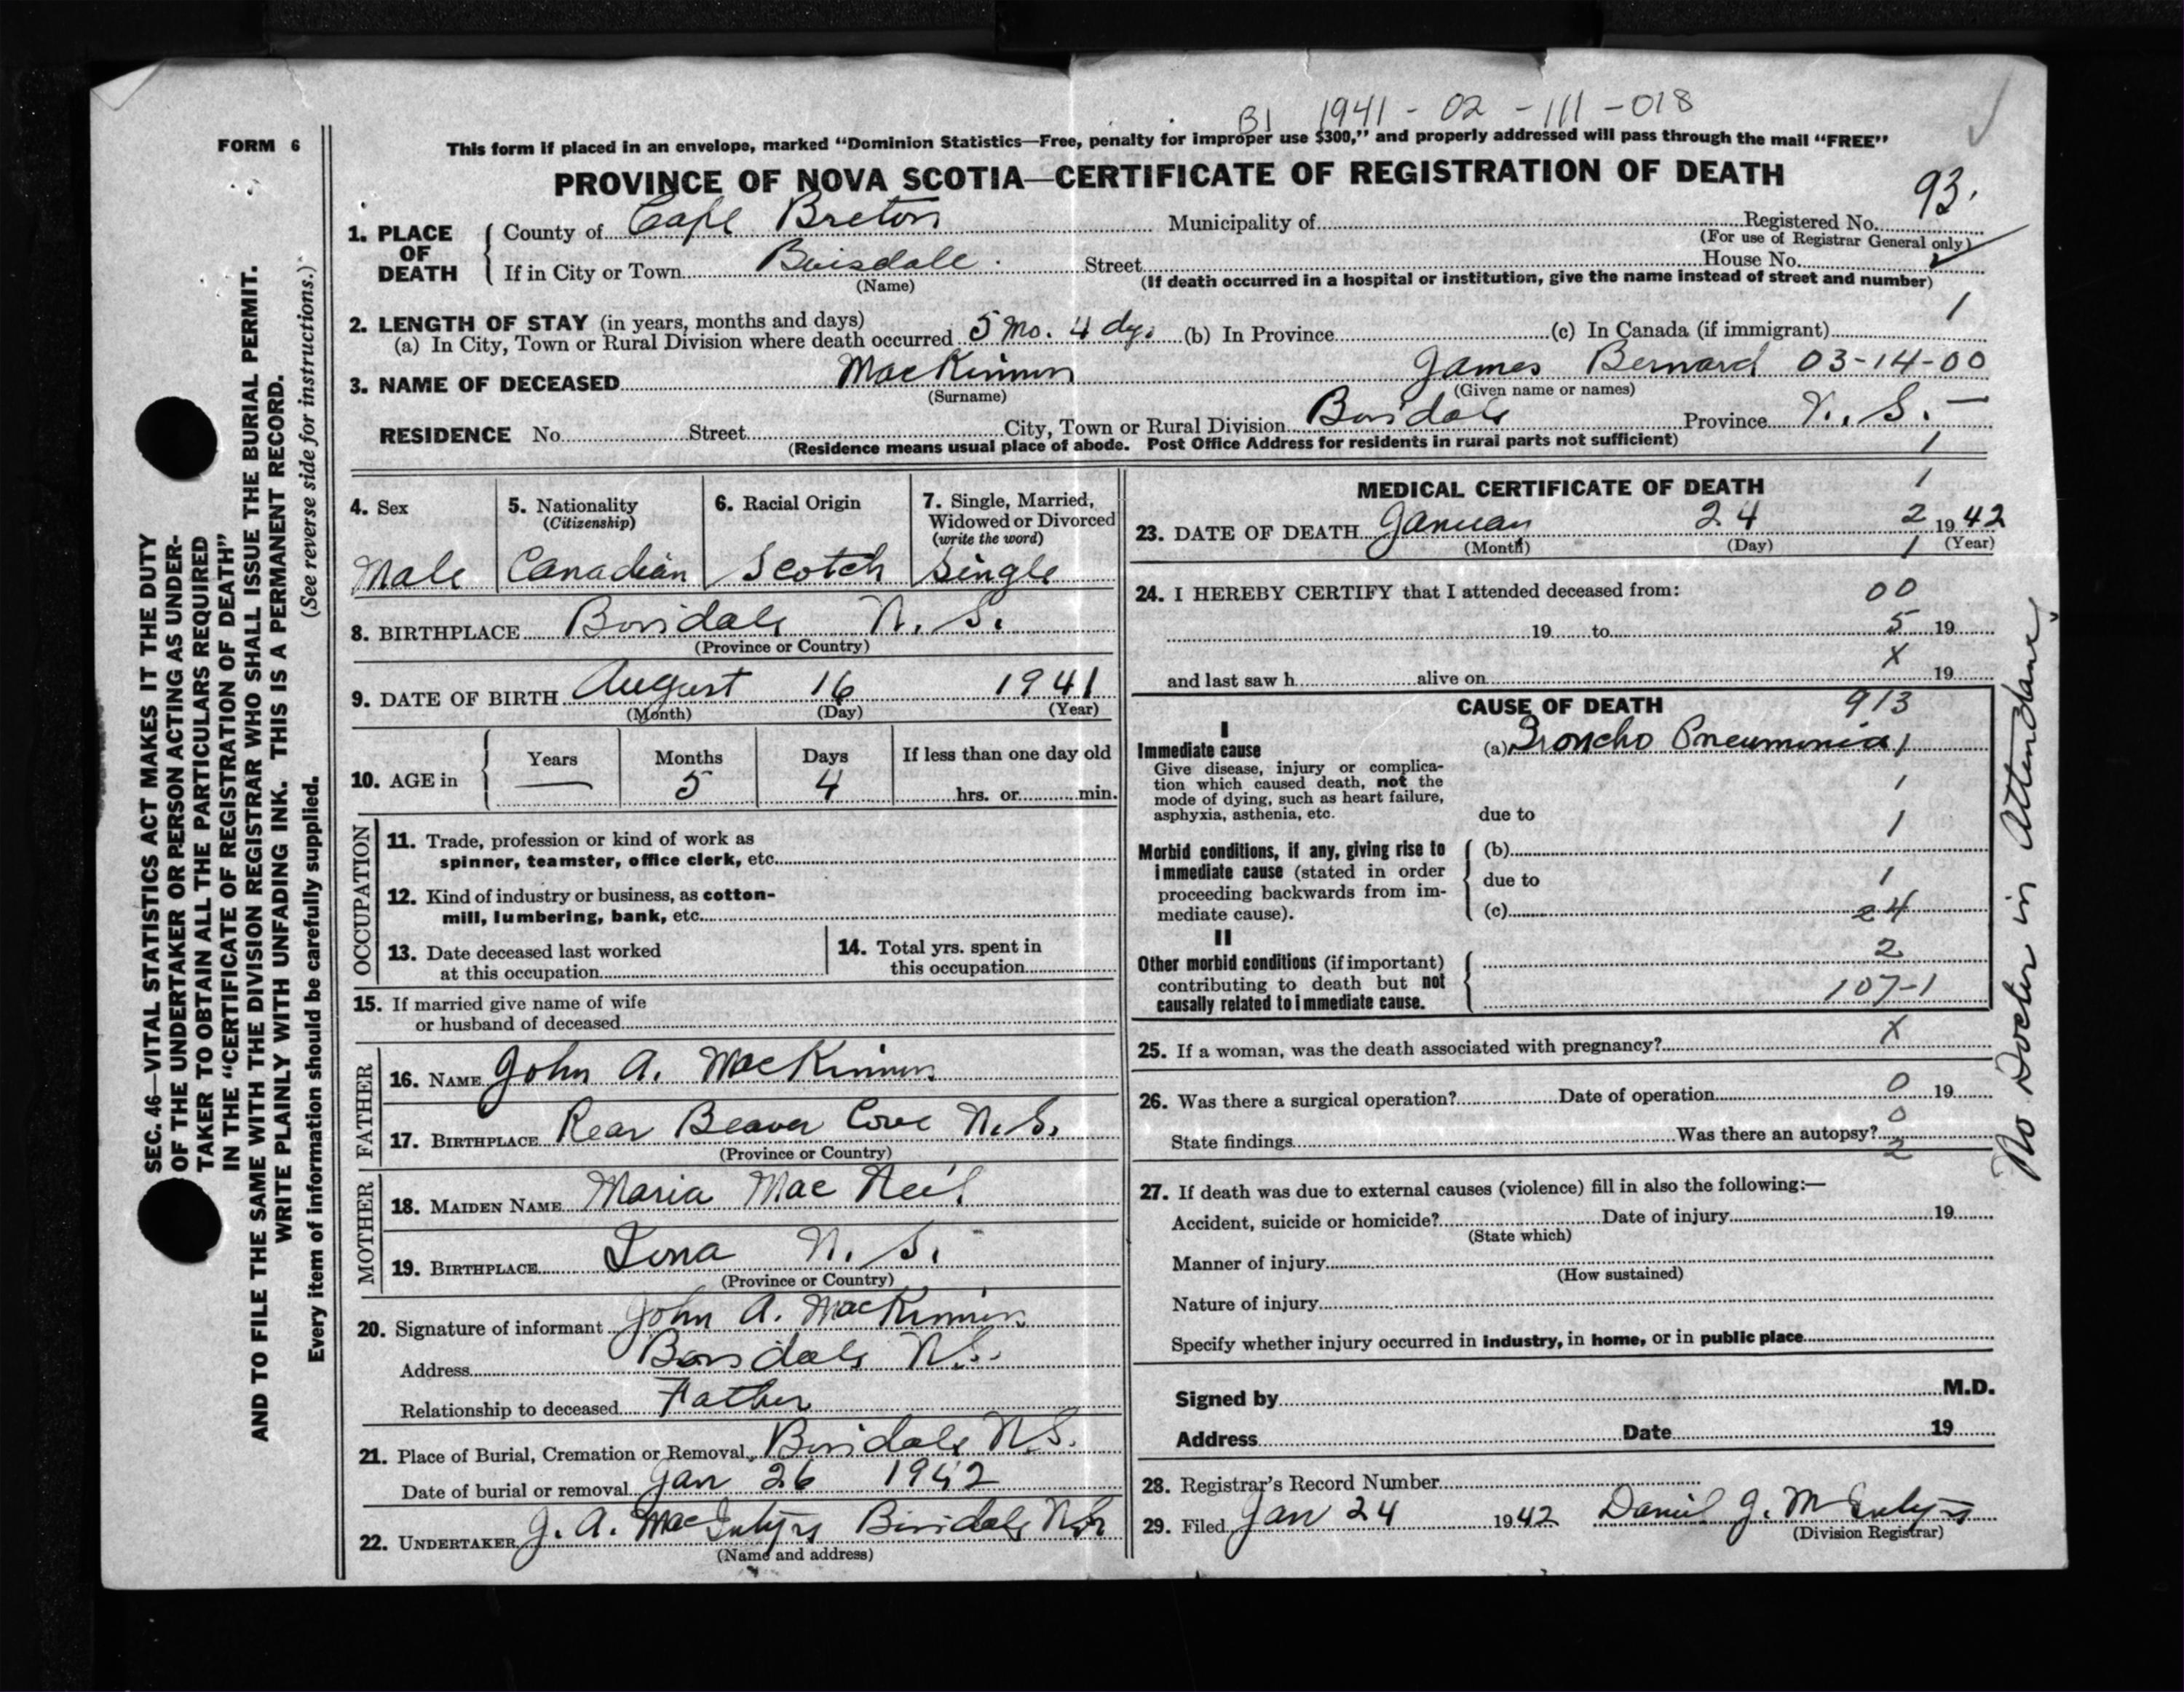 B1 1941-02-111-018
FORM 6
This form if placed in an envelope, marked “Dominion Statistics—Free, penalty for improper use $300,” and properly addressed will pass through the mail “FREE”
PROVINCE OF NOVA SCOTIA—CERTIFICATE OF REGISTRATION OF DEATH
93.
1. PLACE OF DEATH
County of Cape Breton Municipality of Registered No.
(For use of Registrar General only)
If in City or Town Boisdale. Street House No.
(Name) (If death occurred in a hospital or institution, give the name instead of street and number)
1
2. LENGTH OF STAY (in years, months and days)
(a) In City, Town or Rural Division where death occurred 5 mo. 4 dys. (b) In Province (c) In Canada (if immigrant)
3. NAME OF DECEASED MacKinnon James Bernard 03-14-00
(Surname) (Given name or names)
RESIDENCE No. Street City, Town or Rural Division Boisdale Province N. S. —
(Residence means usual place of abode. Post Office Address for residents in rural parts not sufficient) 1
4. Sex
Male
5. Nationality
(Citizenship)
Canadian
6. Racial Origin
Scotch
7. Single, Married,
Widowed or Divorced
(write the word)
Single
8. BIRTHPLACE Boisdale N. S.
(Province or Country)
9. DATE OF BIRTH August 16 1941
(Month) (Day) (Year)
10. AGE in
Years Months Days If less than one day old
— 5 4 hrs. or min.
OCCUPATION
11. Trade, profession or kind of work as
spinner, teamster, office clerk, etc.
12. Kind of industry or business, as cotton-
mill, lumbering, bank, etc.
13. Date deceased last worked
at this occupation
14. Total yrs. spent in
this occupation
15. If married give name of wife
or husband of deceased
FATHER
16. NAME John A. MacKinnon
17. BIRTHPLACE Rear Beaver Cove N. S.
(Province or Country)
MOTHER
18. MAIDEN NAME Maria Mac Neil
19. BIRTHPLACE Iona N. S.
(Province or Country)
20. Signature of informant John A. MacKinnon
Address Boisdale N.S.
Relationship to deceased Father
21. Place of Burial, Cremation or Removal Boisdale N.S.
Date of burial or removal Jan 26 1942
22. UNDERTAKER J. A. MacIntyre Boisdale N.S.
(Name and address)
MEDICAL CERTIFICATE OF DEATH 1
23. DATE OF DEATH January 24 2 1942
(Month) (Day) 1 (Year)
24. I HEREBY CERTIFY that I attended deceased from: 00
19 to 5 19
X
and last saw h alive on 19
CAUSE OF DEATH 913
I
Immediate cause (a) Broncho Pneumonia 1
Give disease, injury or complica-
tion which caused death, not the 1
mode of dying, such as heart failure,
asphyxia, asthenia, etc. due to 1
Morbid conditions, if any, giving rise to (b)
immediate cause (stated in order due to 1
proceeding backwards from im-
mediate cause). (c) 24
II
Other morbid conditions (if important) 2
contributing to death but not
causally related to immediate cause. 107-1
25. If a woman, was the death associated with pregnancy? X
26. Was there a surgical operation? Date of operation 0 19
0
State findings Was there an autopsy?
2
27. If death was due to external causes (violence) fill in also the following:—
Accident, suicide or homicide? Date of injury 19
(State which)
Manner of injury
(How sustained)
Nature of injury
Specify whether injury occurred in industry, in home, or in public place
Signed by M.D.
Address Date 19
28. Registrar's Record Number
29. Filed Jan 24 1942 Daniel J. McIntyre
(Division Registrar)
No Doctor in Attendance
SEC. 46—VITAL STATISTICS ACT MAKES IT THE DUTY
OF THE UNDERTAKER OR PERSON ACTING AS UNDER-
TAKER TO OBTAIN ALL THE PARTICULARS REQUIRED
IN THE “CERTIFICATE OF REGISTRATION OF DEATH”
AND TO FILE THE SAME WITH THE DIVISION REGISTRAR WHO SHALL ISSUE THE BURIAL PERMIT.
WRITE PLAINLY WITH UNFADING INK. THIS IS A PERMANENT RECORD.
Every item of information should be carefully supplied. (See reverse side for instructions.)